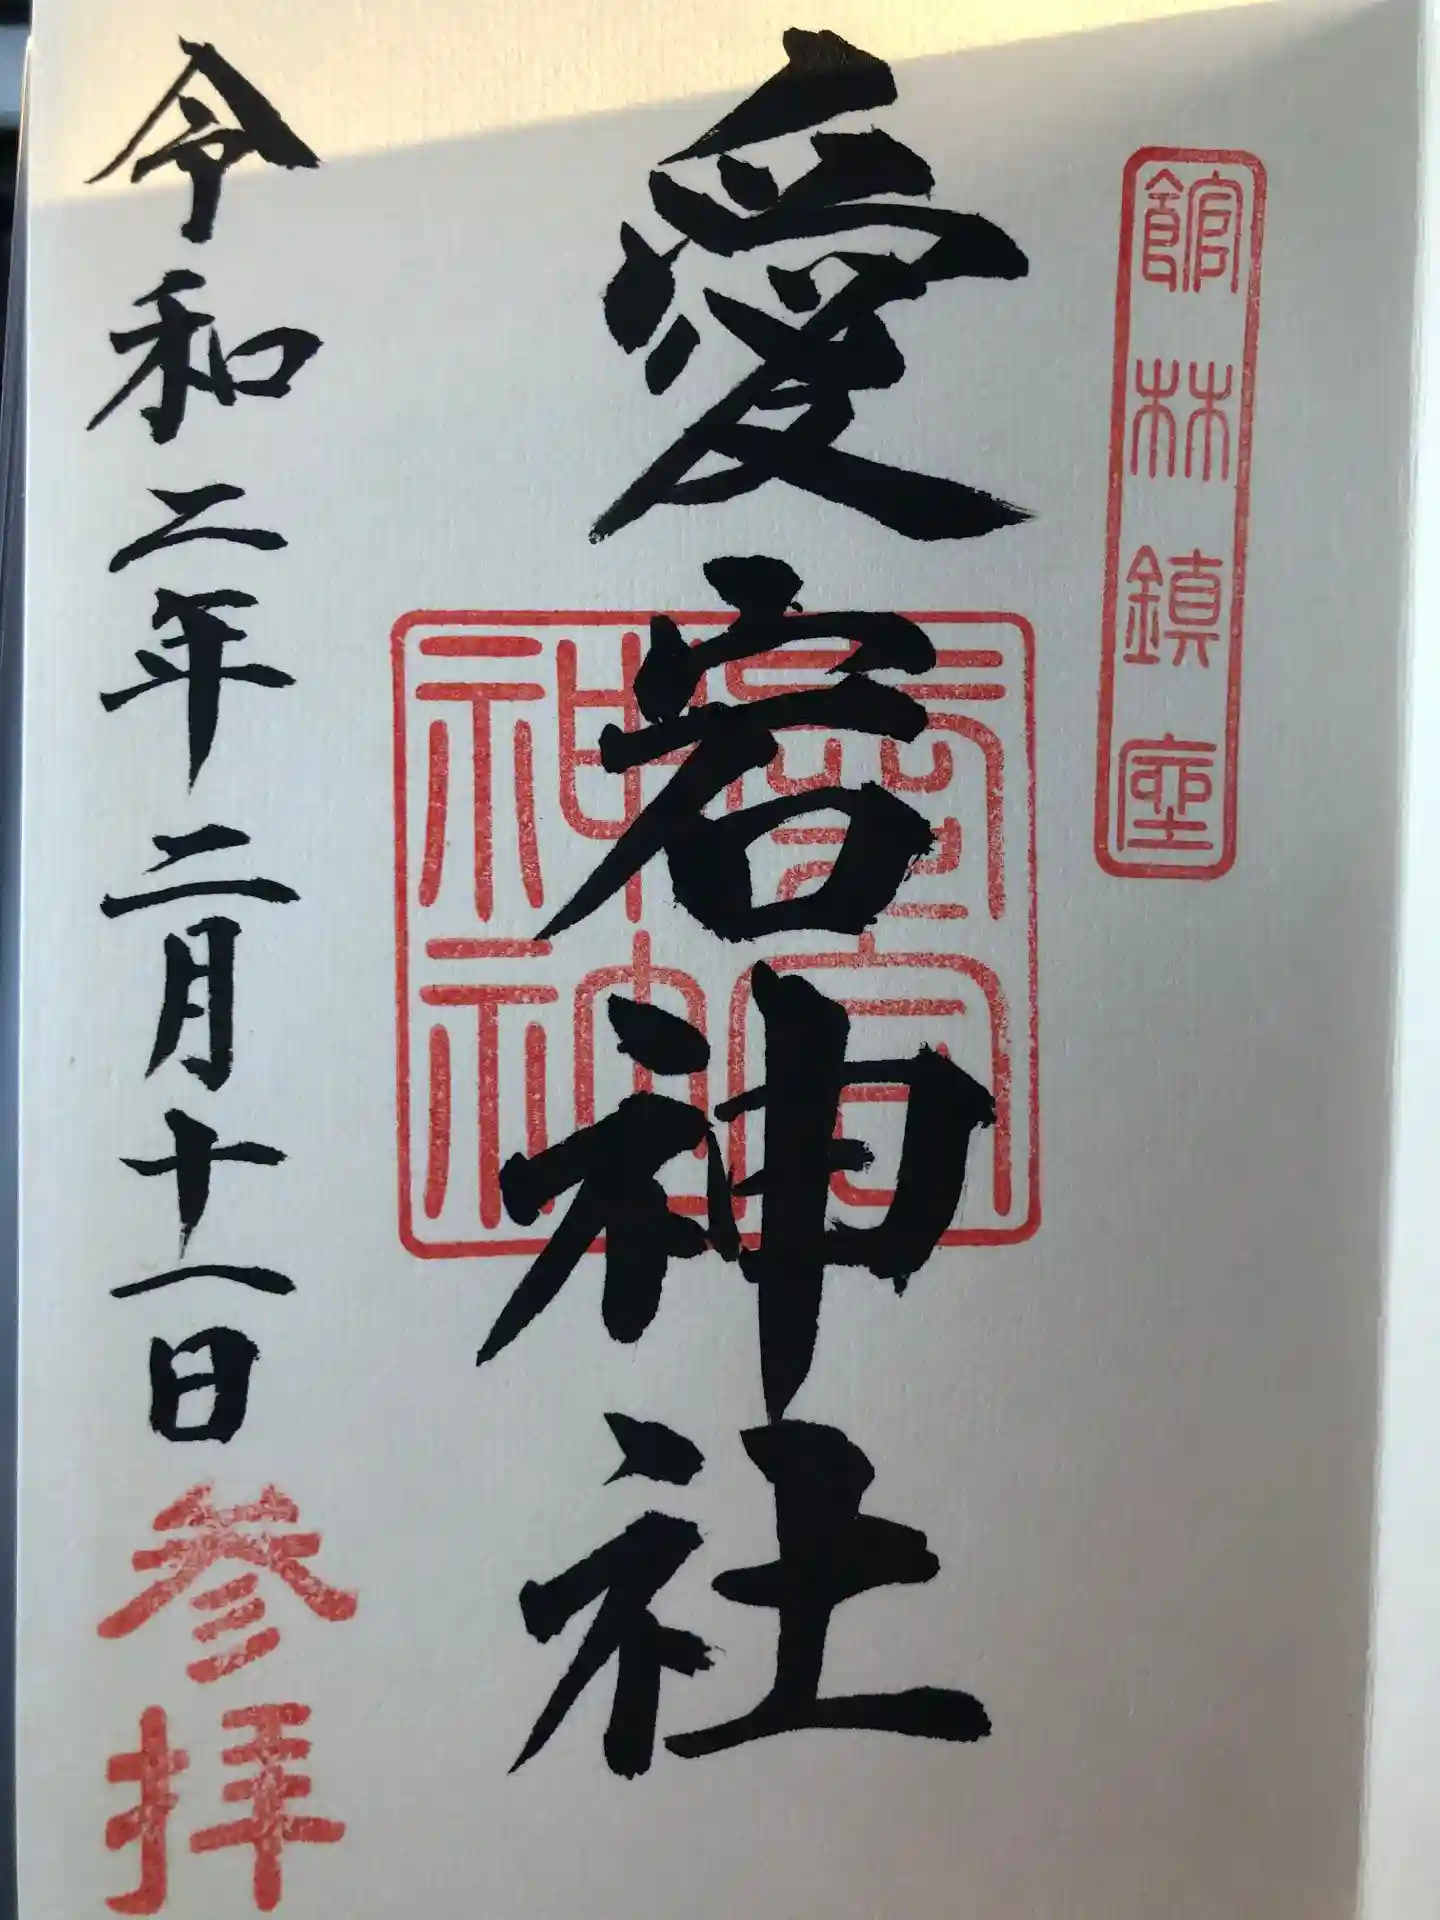 館林鎮座
愛宕神社
愛宕神社
令和二年二月十一日
参拝